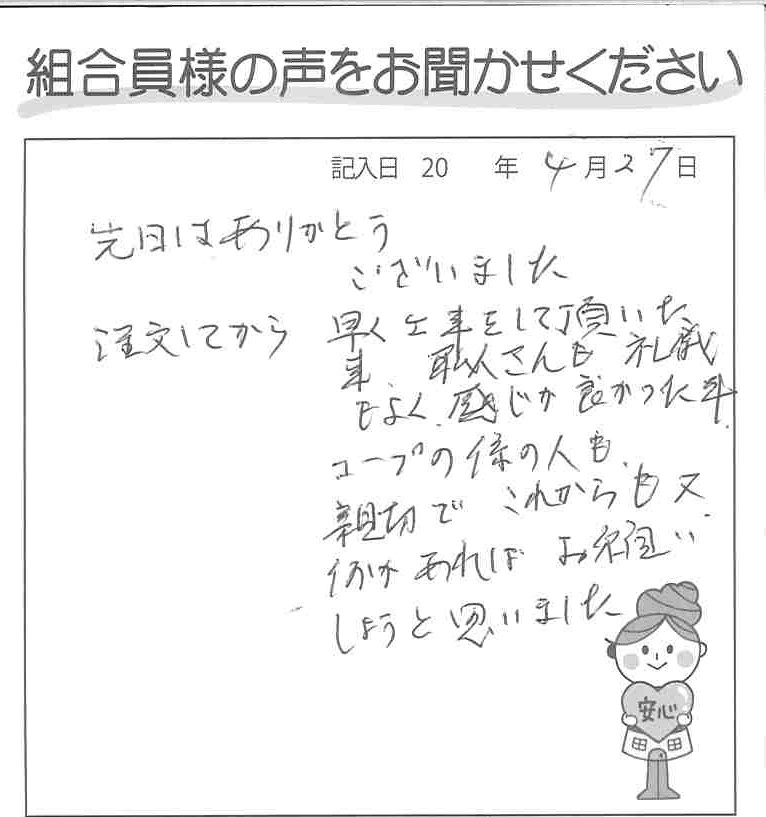 組合員様の声をお聞かせください
記入日 20 年 4月27日
先日はありがとう
ございました
注文してから 早く工事をして頂いた
事、職人さんも 礼儀
もよく、感じが良かった事
コープの係の人も、
親切で これからも又
何かあれば お願い
しようと思いました
安心